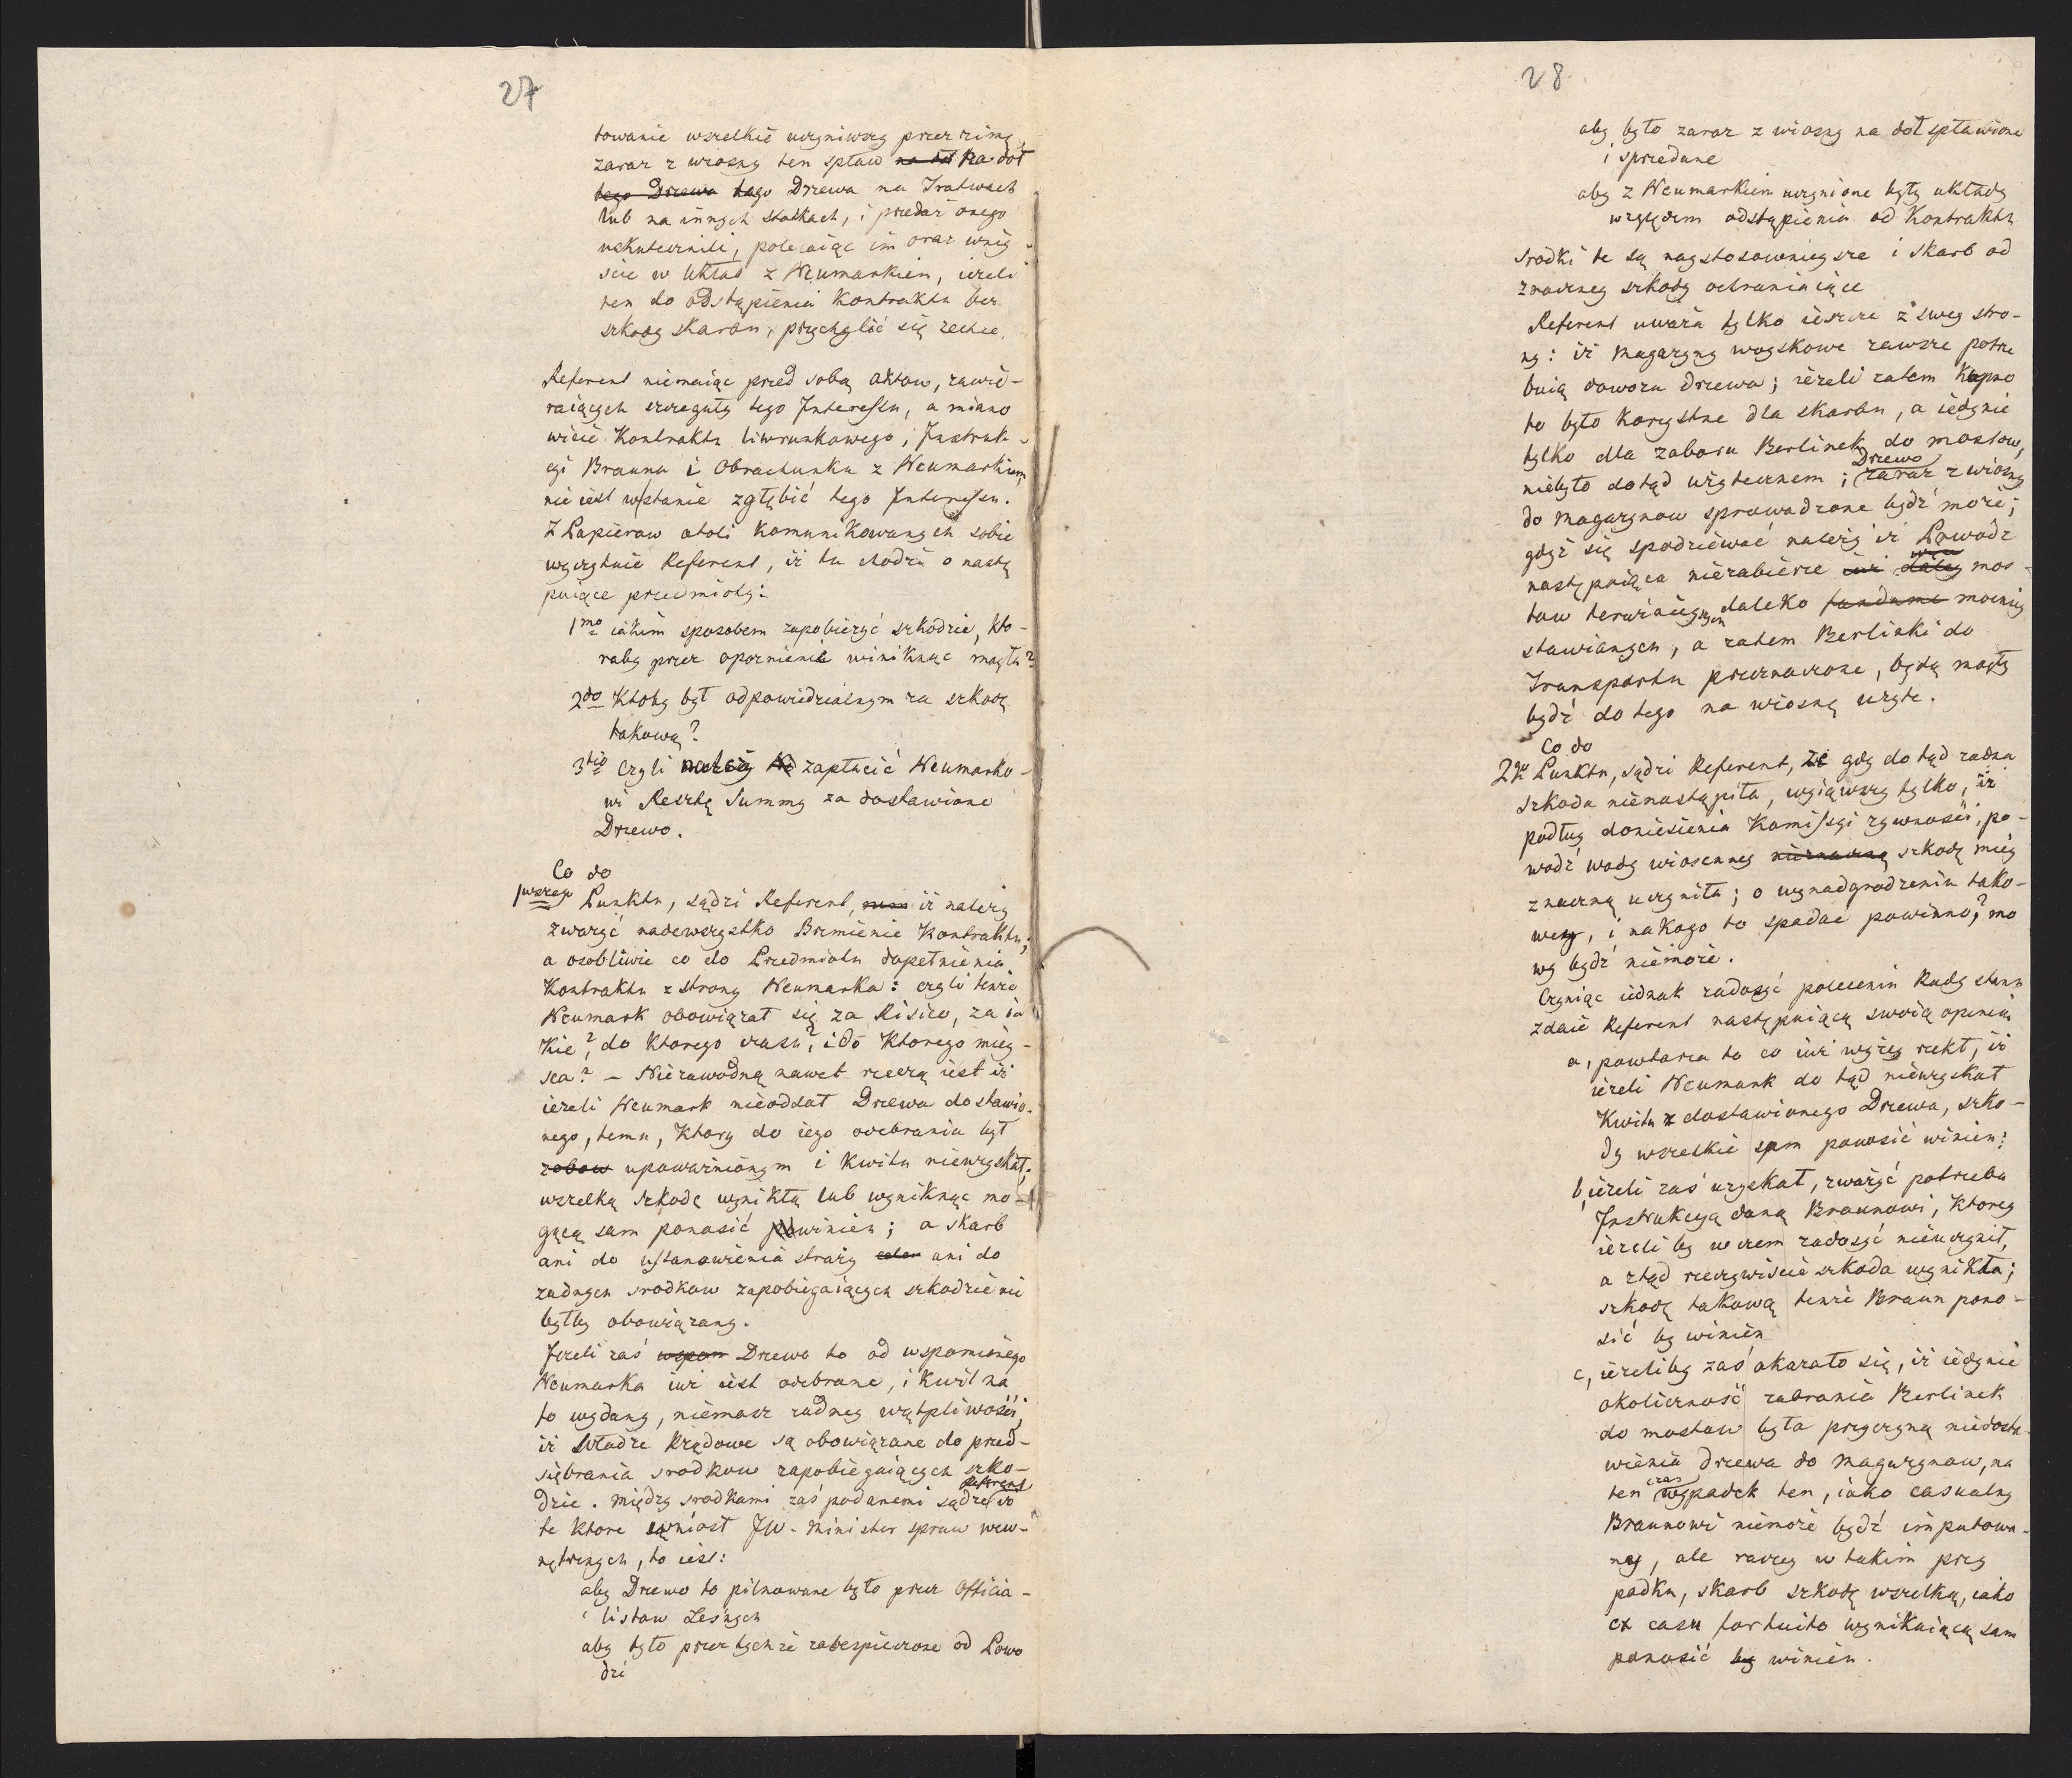 27
towanie wszelkie uczyniwszy przez zimę,
zaraz z wiosny ten spław na dół na dół
tego Drzewa tego Drzewa na Tratwach
lub na innych statkach, i przedaż onego
uskutecznili, polecaiąc im oraz wniy-
scie w Układ z Neumarkiem, ieżeli
ten do odstąpienia Kontraktu bez
szkody skarbu, przychylić się zechce.
Referent niemaiąc przed sobą aktow, zawie-
raiących szczeguły tego Interessu, a miano
wicie Kontraktu liwrunkowego, Instruk-
cyi Brauna i Obrachunku z Neumarkiem,
nie iest wstanie zgłębić tego Interessu.
Z Papierow atoli kommunikowanych sobie
wyczytuie Referent, iż tu chodzi o nastę
puiące przedmioty:
1mo iakim sposobem zapobieżyć szkodzie, kto-
raby przez opoznienie wyniknąć mogła?
2do Ktoby był odpowiedzialnym za szkodę
takową?
3tio Czyli należy zapłacić Neumarko-
wi Resztę Summy za dostawione
Drzewo.
Co do
1wszego Punktu, sądzi Referent, iż należy
zwarzyć nadewszystko Brzmienie Kontraktu,
a osobliwie co do Przedmiotu dopełnienia
Kontraktu z strony Neumarka: czyli tenże
Neumark obowiązał się za Risico, za ia
kie?, do ktorego czasu?, i do Ktorego miey-
sca? – Niezawodną nawet rzeczą iest iż
ieżeli Neumark nieoddał Drzewa dostawio-
nego, temu, Ktory do iego odebrania był
upoważnionym i Kwitu nieuzyskał;
wszelką szkodę wynikłą lub wyniknąc mo-
gącą sam ponosić powinien; a skarb
ani do ustanowienia straży ani do
żadnych srodkow zapobiegaiących szkodzie nie
byłby obowiązany.
Jeżeli zaś wspom Drzewo to od wspomionego
Neumarka iuż iest odebrane, i Kwit na
to wydany, niemasz żadney wątpliwości,
iż Władze Rządowe są obowiązane do przed-
sięwbrania srodkow zapobiegaiących szko-
dzie. Między srodkami zaś podanemi sądzi Referent iż
te ktore wniost JW. Minister spraw wew-
nętrznych, to iest:
aby Drzewo to pilnowane było przez Officia-
listow Leśnych
aby było przez tychże zabespieczone od Powo
dzi
28
aby było zaraz z wiosny na dół spławione
i sprzedane
aby z Neumarkiem uczynione były układy
względem odstąpienia od Kontraktu
Srodki te są naystosownieysze i skarb od
znaczney szkody ochraniaiące
Referent uważa tylko ieszcze z swey stro-
ny: iż magazyny woyskowe zawsze potrze
buią dowozu drzewa; ieżeli zatem Kupno
to było korzystne dla skarbu, a iedynie
tylko dla zaboru Berlinek do mostow,
niebyło dotąd użytecznem; Drzewo zaraz z wiosny
do magazynow sprowadzone bydź może;
gdyż się spodziewać należy iż Powodz
następuiąca niezabierze iuż daley mos-
tow terazniejszych daleko fundame mocniey
stawianych, a zatem Berlinki do
Transportu przeznaczone, będą mogły
bydź do tego na wiosnę użyte.
Co do
2go Punktu, sądzi Referent, że gdy do tąd żadna
szkoda nienastąpiła, wyiąwszy tylko, iż
podług doniesienia Kommissyi żywności, po-
wodź wody wiosenney nieznaczną szkodę mniey
znaczną uczyniła; o wynadgrodzeniu tako-
wey, i nakogo to spadać powinno?, mo
wy bydź niemoże.
Czyniąc iednak zadosyć poleceniu Rady stanu
zdaie Referent następuiącą swoią opinią
a, powtarza to co iuż wyżey rzekł, iż
ieżeli Neumark do tąd nieuzyskał
Kwitu z dostawionego Drzewa, szko-
dy wszelkie sam ponosić winien;
b, ieżeli zaś uzyskał, zważyć potrzeba
Instrukcyą daną Braunowi, Ktorey
ieżeliby w czem zadosyć nieuczynił,
a ztąd rzeczywiscie szkoda wynikła;
szkodę takową tenże Braun pono-
sić by winien
c, ieżeliby zaś okazało się, iż iedynie
okoliczność zabrania Berlinek
do mostow była przyczyną niedosta-
wienia drzewa do magazynow, na
ten czas wypadek ten, iako casualny
Braunowi niemoże bydź imputowa-
ny, ale raczey w takim przy
padku, skarb szkodę wszelką, iako
ex casu fortuito wynikaiącą sam
ponosić by winien.